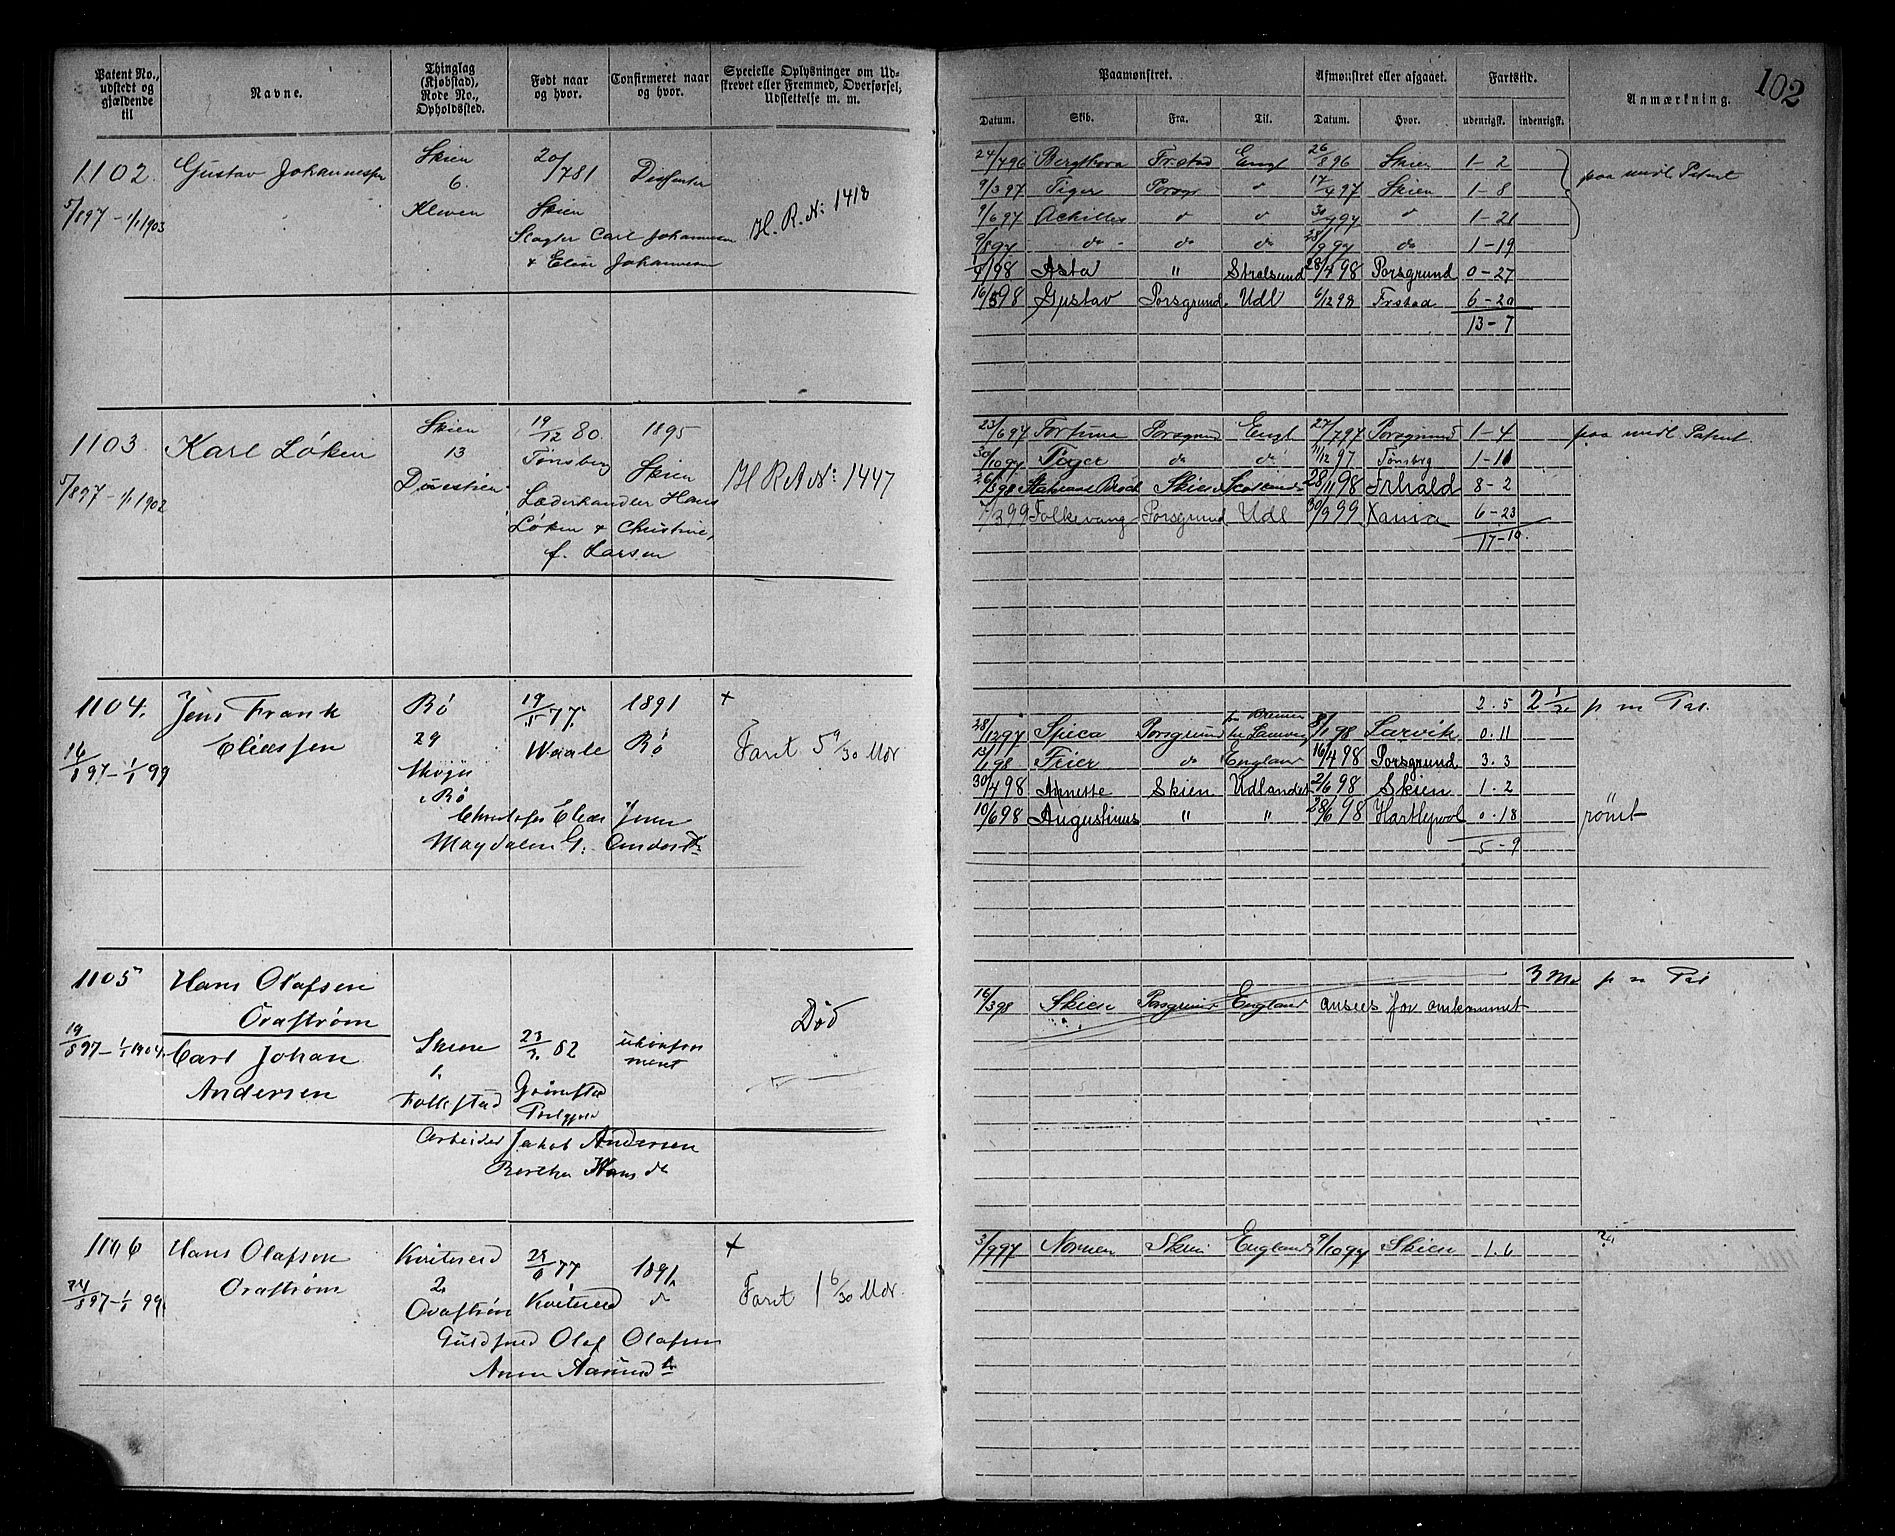 102
Patent No., udstedt og gjældende til
Navne.
Thinglag (Kjøbstad), Rode No., Opholdssted.
Født naar og hvor.
Confirmeret naar og hvor.
Specielle Oplysninger om Udskrevet eller Fremmed, Overførsel, Udslettelse m. m.
Paamønstret.
Afmønstret eller afgaaet.
Fartstid.
Anmærkning.
Datum. Skib. Fra. Til. Datum. Hvor. udenrigsk. indenrigsk.
1102. Gustav Johannessen Skien 20/7 81 Dissenter
6.
5/8 97 – 1/1 1903 Kleven Skien
Carl Johannesen
& Elise Johannesen
H. R. Nº: 1418
24/7 96 Bergthora Frstad Engl 26/8 96 Skien 1 - 2
9/3 97 Tiger Porsgr 17/4 97 Skien 1 - 8 paa medl Patent
9/6 97 Achilles 30/7 97 1 - 21
9/8 97 do do do 28/9 97 do 1 - 19
1/4 98 Asta " Stralsund 28/4 98 Porsgrund 0 - 27
16/5 98 Gustav Porsgrund Udl 6/12 98 Frstad 6 - 20
13 - 7
1103. Karl Løken Skien 19/12 80. 1895
13 Tønsberg Skien
5/8 97 – 1/1 1902
Læderhandler Hans
Løken & Christine,
f. Larsen
H R A Nº: 1447
23/6 97 Fortuna Porsgrund Engl 27/7 97 Porsgrund 1 - 4 paa medl Patent
30/10 97 do do 11/12 97 Tønsbrg 1 - 11
26/3 98 Skien Scotland 28/11 98 Frhald 8 - 2
7/3 99 Folkevang Porsgrund Udl 30/9 99 Xania 6 - 23
17 - 10.
1104. Jens Frank Eliassen Bø 19/1 77. 1891 +
29 Waale Bø
16/8 97 – 1/1 99
i Bø
Elias Jensen
Magdalene G. Andersdtr
Faret 5 9/30 Mdr
2. 5 p m Pat.
28/12 97 Spica Porsgrund fra Bremen 8/1 98 Larvik 0. 11
13/1 98 Feier do England 16/4 98 Porsgrund 3. 3
30/4 98 Annette Skien Udlandet 2/6 98 Skien 1. 2
10/6 98 Augustinus " " 28/6 98 Hartlepool 0. 18 rømt
5 - 9
1105 Hans Olafsen
Ovaftrøm
19/8 97 – 1/1 1904. Carl Johan Skien 23/7. 82 ukonfor
Andersen 1. ment
Folkestad
Arbeider Jakob Andersen
Berthe Hansdt
Død
3 Md p m Pat
16/3 98 Skien Porsgrund England ansees for omkommet
1106 Hans Olafsen Kviteseid 1891 +
Ovaftrøm 2.
24/8 97 – 1/1 99. Ovaftrøm Kviteseid do
Olaf Olafsen
Anne
Faret 1 6/30 Mdr.
3/9 97 Nornen Skien England 9/10 97 Skien 1. 6